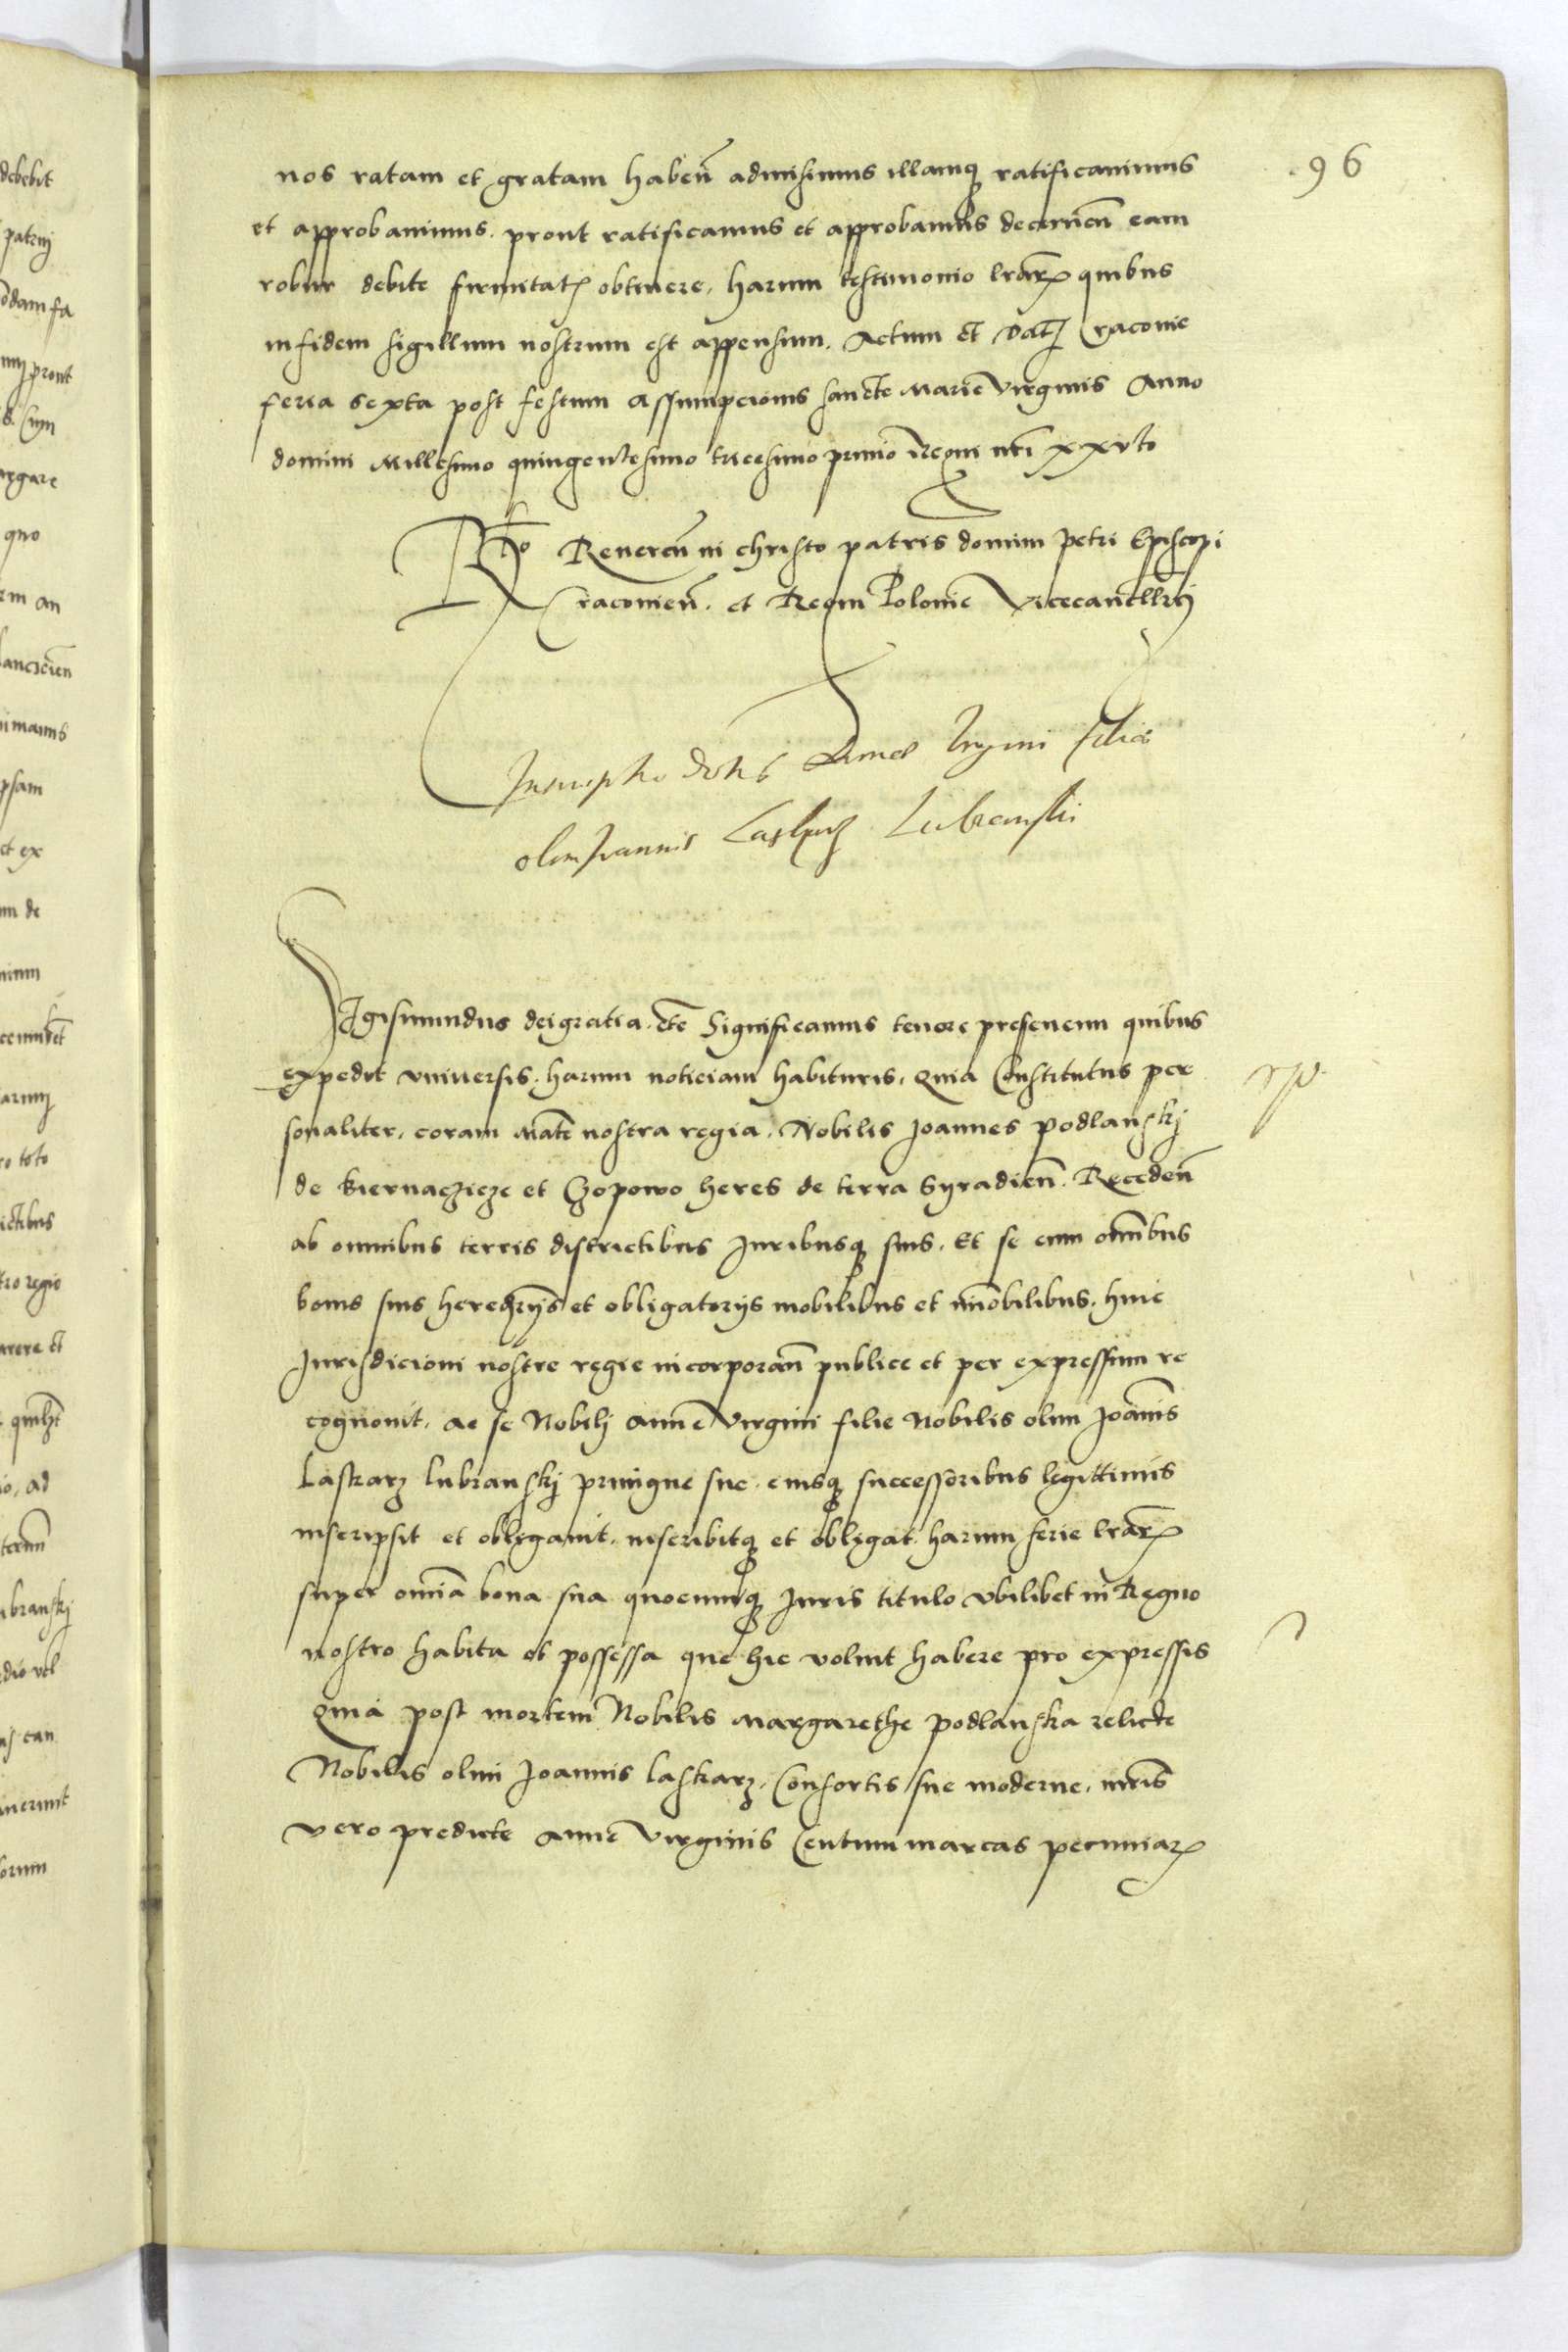 96
nos ratam et gratam habeñ admisimus illamq₃ ratificauimus
et approbauimus. prout ratificamus et approbamus decerneñ eam
robur debite firmitatꝭ obtinere, harum testimonio lrarꝝ quibus
in fidem sigillum nostrum est appensum. Actum et Datꝭ Cracouie
feria sexta post festum Assumpcionis sancte Marie virginis Anno
domini Millesimo quingentesimo tricesimo primo Regni nr̃i xxvto
Rᵗᵒ Reueren̄ in christo patris domini Petri Episcopi
Cracouien̄. et Regni Polonie vicecancellrij
Inscriptio dotis Annae virgini filiae
olim Joannis Laskarz Lubranski
Sigismundus dei gratia. etc̄ Significamus tenore presencium quibus
expedit vniuersis. harum noticiam habituris, Quia Constitutus per
sonaliter, coram Mate nostra regia. Nobilis Joannes Podlanskj
de Biernaczicze et Czopowo heres de terra Syradien̄. Receden̄
ab omnibus terris districtibus Juribusq₃ suis. Et se cum om̄ibus
bonis suis heredr̄ijs et obligatorijs mobilibus et im̄obilibus. huic
Jurisdicioni nostre regie incorporan̄ publice et per expressum re
cognouit. ac se Nobilj Anne virgini filie Nobilis olim Joannis
Laskarz Lubranskj priuigne sue. eiusq₃ successoribus legittimis
inscripsit et obligauit. inscribitq₃ et obligat. harum serie lrarꝝ
super omnia bona sua quocumq₃ Juris titulo vbilibet in Regno
nostro habita et possessa que hic voluit habere pro expressis
Quia post mortem Nobilis Margarethe Podlanska relicte
Nobilis olim Joannis Laskarz. Consortis sue moderne. mr̄is
vero predicte Anne virginis Centum marcas pecuniarꝝ